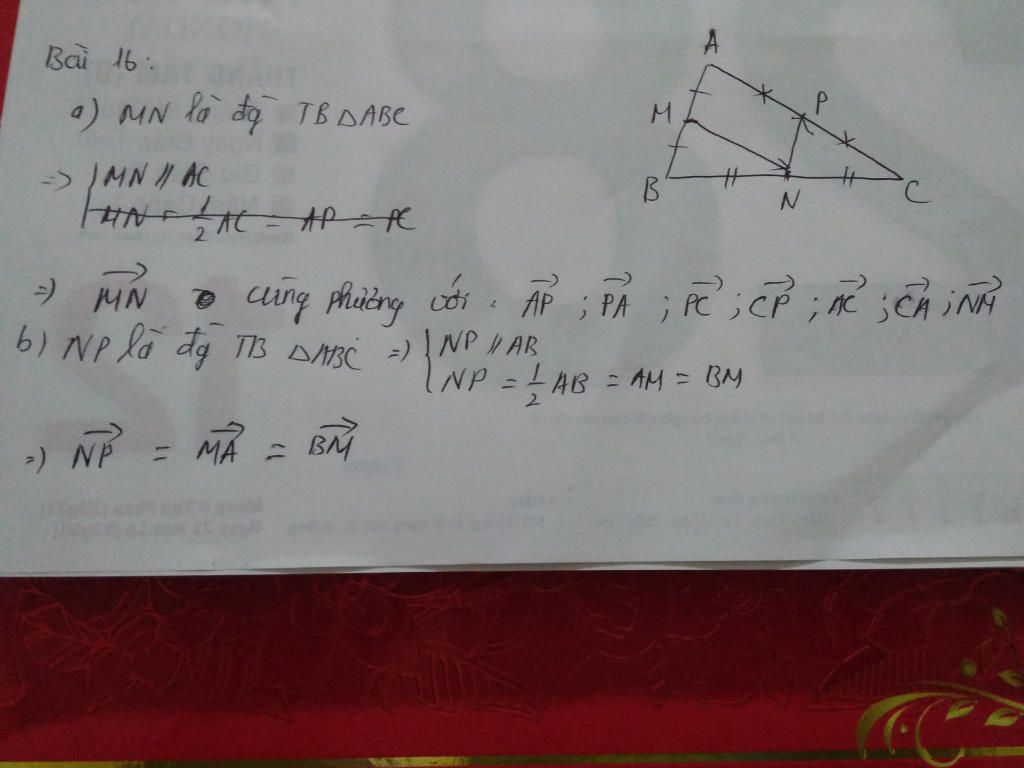 Bài 16:
a) MN là đg TB △ABC
=> { MN // AC
MN = 1/2 AC = AP = PC
=) \overrightarrow{MN} cùng phương với : \overrightarrow{AP} ; \overrightarrow{PA} ; \overrightarrow{PC} ; \overrightarrow{CP} ; \overrightarrow{AC} ; \overrightarrow{CA} ; \overrightarrow{NM}
b) NP là đg TB △ABC =) { NP // AB
NP = 1/2 AB = AM = BM
=) \overrightarrow{NP} = \overrightarrow{MA} = \overrightarrow{BM}
A
M
P
B
N
C